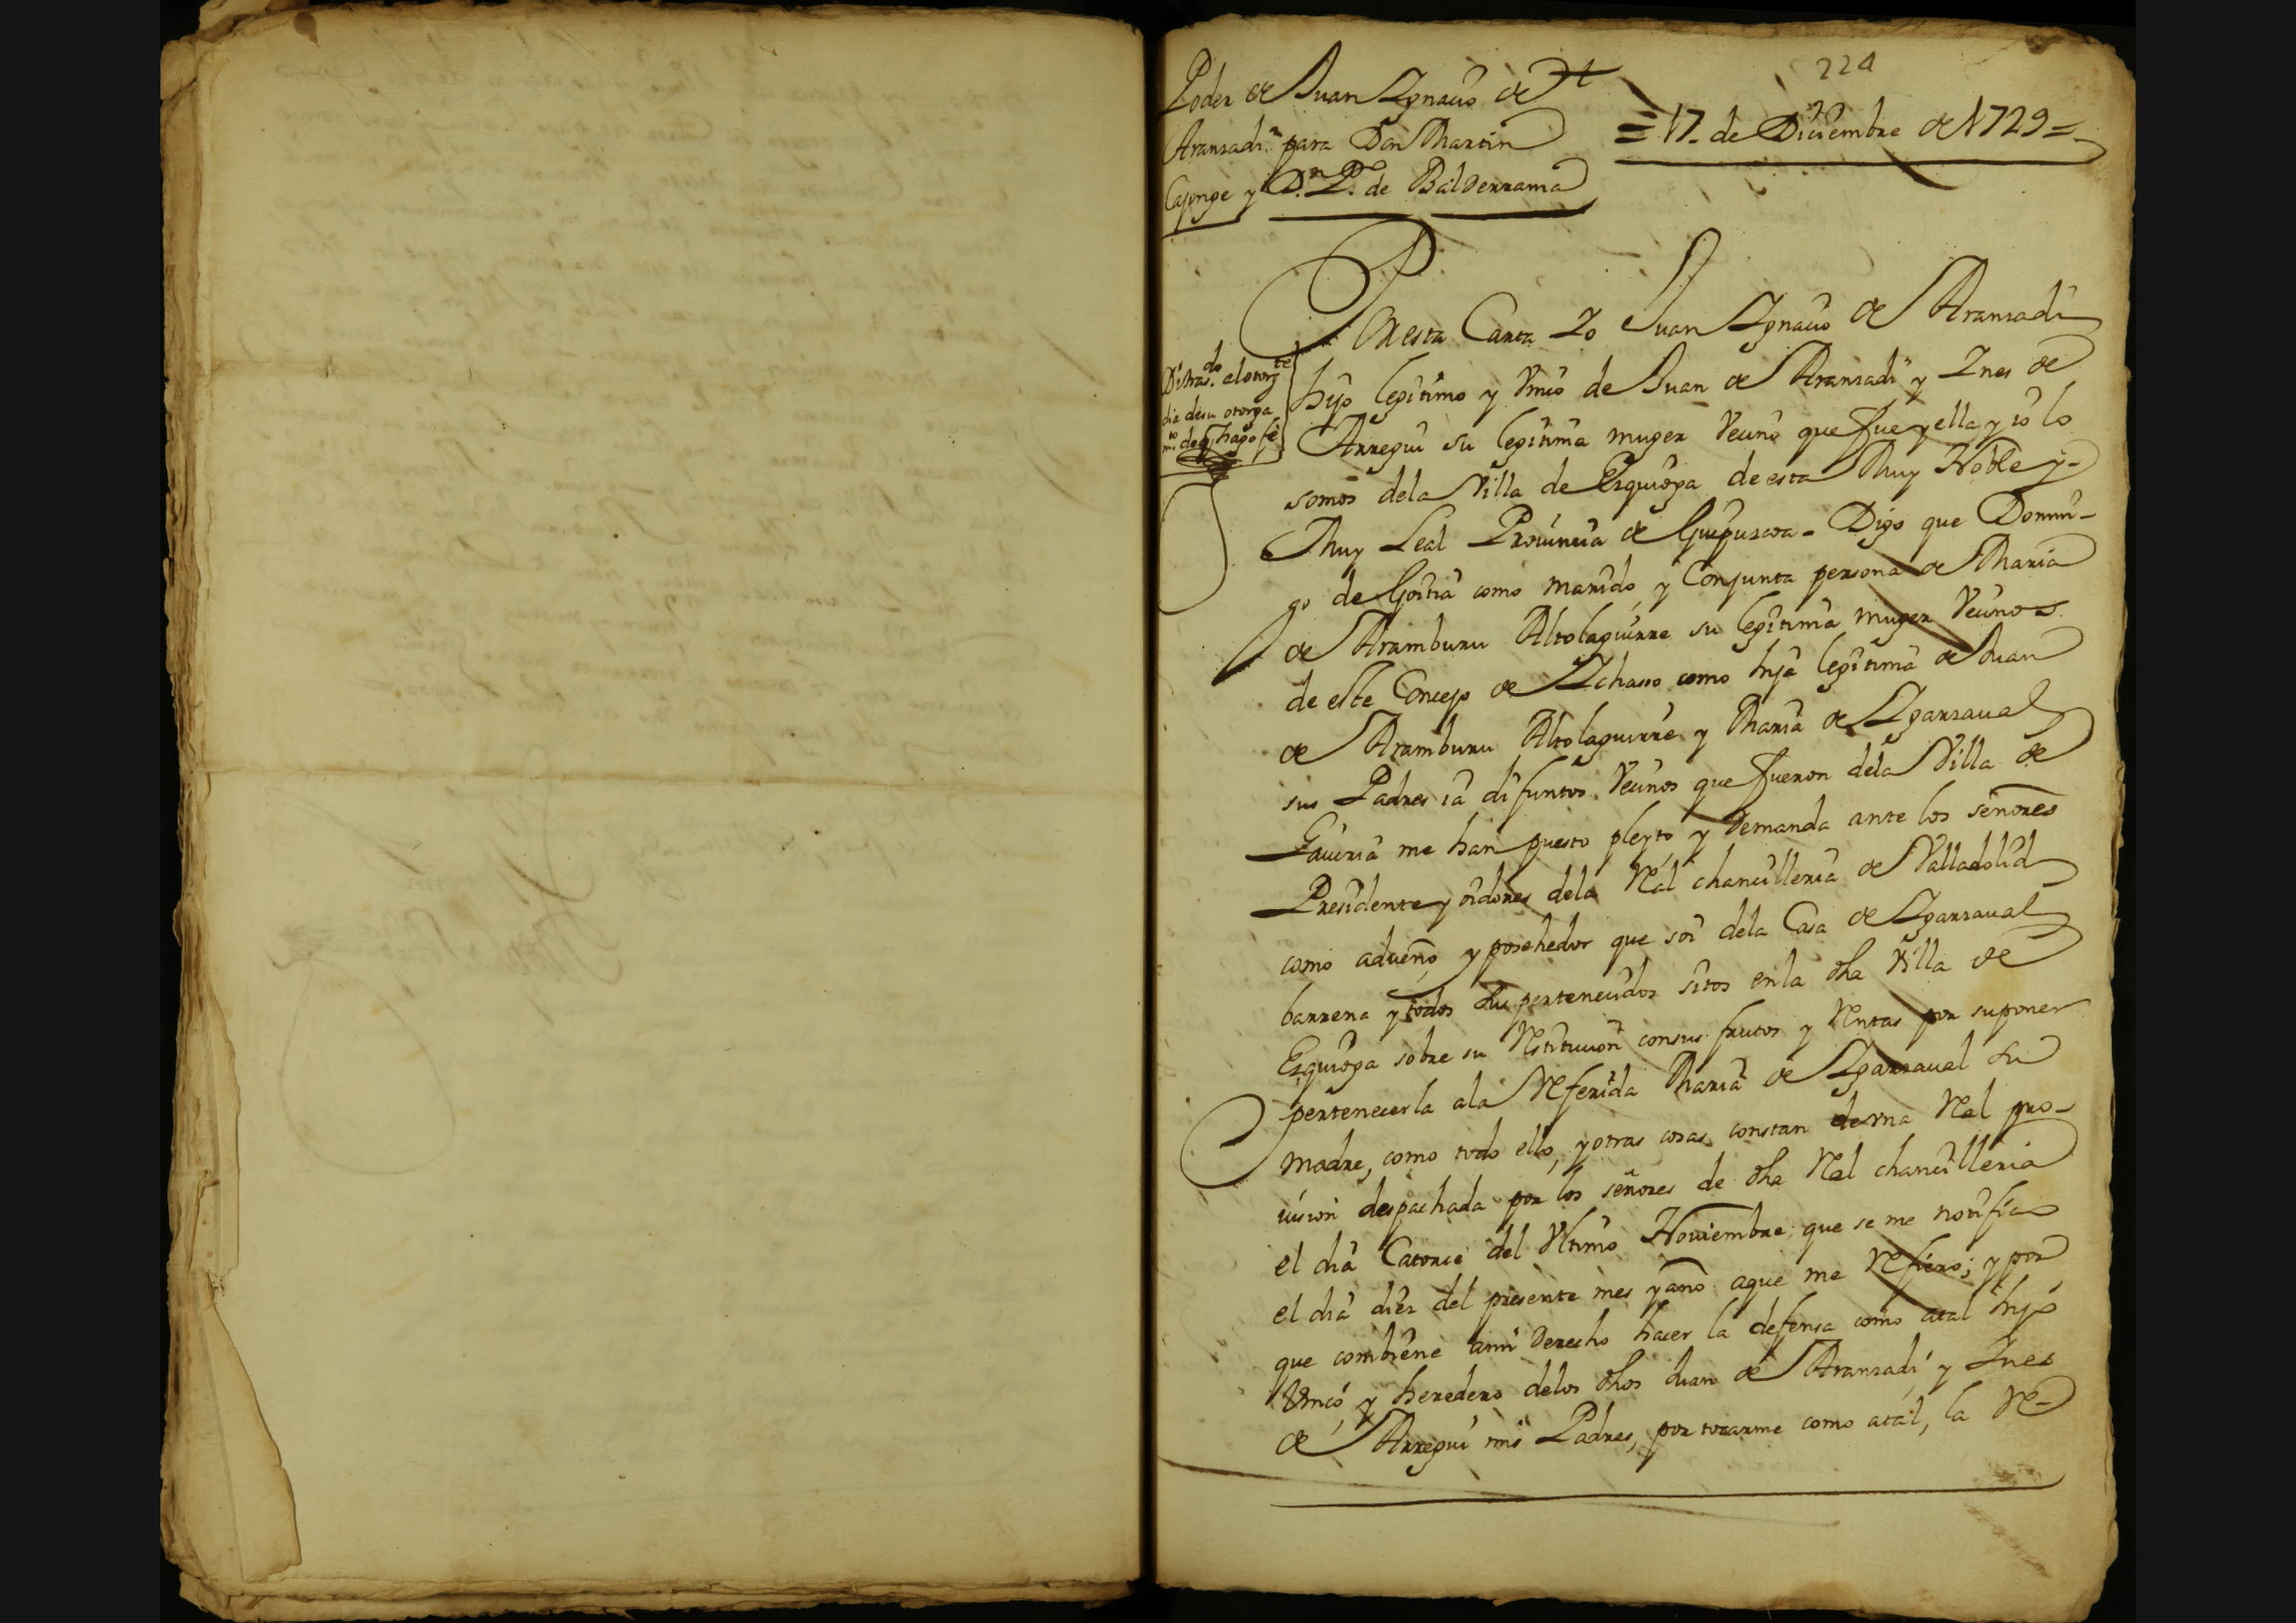 224
Poder de Juan Ygnacio de
Aransadi para Don Martin
Cajonge y D.n P.o de Balderrama
= 17 de Diciembre de 1729 =
Por esta Carta Yo Juan Ygnacio de Aransadi
hijo legitimo y Vnico de Juan de Aransadi y Ynes de
Arregui su legitima muger Vecino que fue y ella y io lo
somos dela Villa de Ezquioga de esta Muy Noble y
Muy Leal Prouincia de Guipuscoa - Digo que Domin-
go de Goitia como marido, y Conjunta persona de Maria
de Aramburu Altolaguirre su legitima muger Vecinos
de este Concejo de Ychasso como hija legitima de Juan
de Aramburu Altolaguirre y Maria de Ygarzaual
sus Padres ia difuntos Vecinos que fueron dela Villa de
Gauiria me han puesto pleyto y demanda ante los señores
Presidente y oidores dela Real chancilleria de Valladolid
como adueño, y posehedor que soi dela Casa de Ygarzaual
barrena y todos sus pertenecidos sitos en la dha Villa de
Ezquioga sobre su Restitucion consus frutos y Rentas por suponer
pertenecerla ala Referida Maria de Ygarzaual su
madre, como todo ello, y otras cosas constan de vna Real pro-
uision despachada por los señores de dha Real chancilleria
el dia Catorce del Vltimo Nouiembre que se me notifico
el dia diez del presente mes y año aque me Refiero; y por
que combiene ami derecho hacer la defensa como atal hijo
Vnico, y heredero delos dhos Juan de Aransadi, y Ynes
de Arregui mis Padres, por tocarme como atal, la Re-
Di tras.do al otorg.te
dia desu otorga
m.to de q hago fe